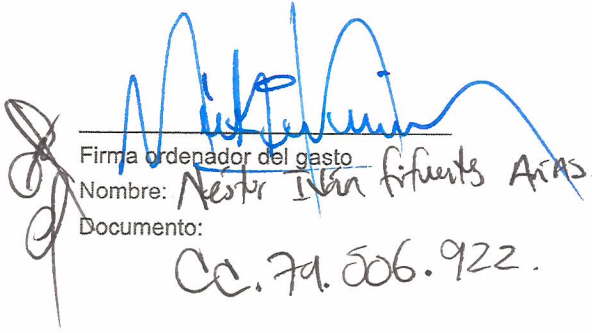 Firma ordenador del gasto
Nombre: Néstor Iván Cifuentes Arias
Documento:
CC. 79.506.922.